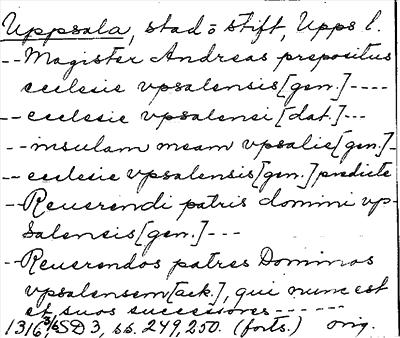 Uppsala, stad o stift, Upps l.
-- Magister Andreas prepositus
ecclesie vpsalensis [gen.] ----
-- ecclesie vpsalensi [dat.] ---
-- insulam meam vpsalie [gen.] -
-- ecclesie vpsalensis [gen.] predicte
- Reuerendi patris domini vp-
salensis [gen.] ---
- Reuerendos patres Dominos
vpsalensem [ack.], qui nunc est
et suos successores ------
1316 3/6 SD 3, ss. 249, 250. (forts.) orig.